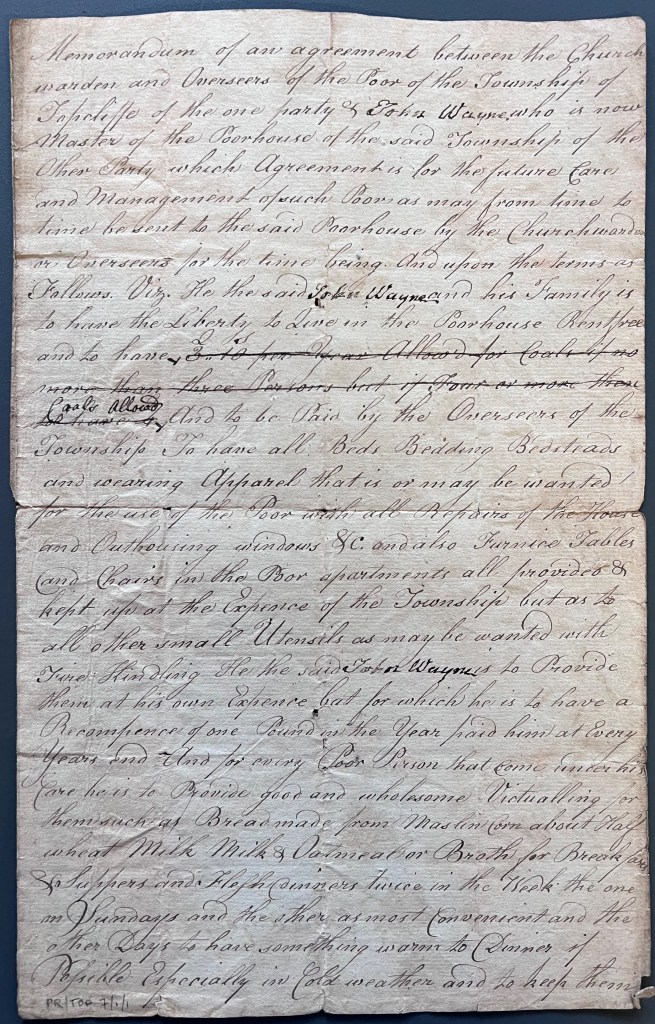 Memorandum of an agreement between the Church
warden and Overseers of the Poor of the Township of
Topcliffe of the one party & John Wayne who is now
Master of the Poorhouse of the said Township of the
Other Party which Agreement is for the future Care
and Management of such Poor as may from time to
time be sent to the said Poorhouse by the Churchwarden
or Overseers for the time being. And upon the terms as
Follows. Viz. He the said John Wayne and his Family is
to have the Liberty to Live in the Poorhouse Rentfree
and to have per Year Allow'd for Coals if no
more than three Persons but if Four or more then
Coals Allowd
to have And to be Paid by the Overseers of the
Township To have all Beds Bedding Bedsteads
and wearing Apparel that is or may be wanted
for the use of the Poor with all Repairs of the House
and Outhousing windows &c. and also Furnice Tables
and Chairs in the Poor apartments all provided &
kept up at the Expence of the Township but as to
all other small Utensils as may be wanted with
Fire Kindling He the said John Wayne is to Provide
them at his own Expence but for which he is to have a
Recompence of one Pound in the Year paid him at Every
Years end And for every Poor Person that come under his
Care he is to Provide good and wholesome Victualling for
them such as Bread made from Maslin Corn about Half
wheat Milk Milk & Oatmeal or Broth for Breakfast
& Suppers and Flesh Dinners twice in the Week the one
on Sundays and the other as most Convenient and the
other Days to have something warm to Dinner if
Possible Especially in Cold weather and to keep them
PR/TOP 7/1/1